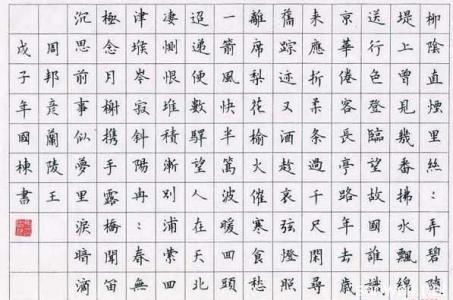 柳陰直煙里絲：弄碧隋
堤上曾見幾番拂水飄綿
送行色登臨望故國誰識
京華倦客長亭路年去歲
来應折柔條過千尺閑尋
舊踪迹又酒趁哀弦燈照
離席梨花榆火催寒食愁
一箭風快半篙波暖回頭
迢递便數驛望人在天北
凄惻恨堆積漸别浦縈回
津堠岑寂斜陽冉：春無
極念月榭携手露橋聞笛
沉思前事似夢里淚暗滴
周邦彦蘭陵王
戊子年國棟書